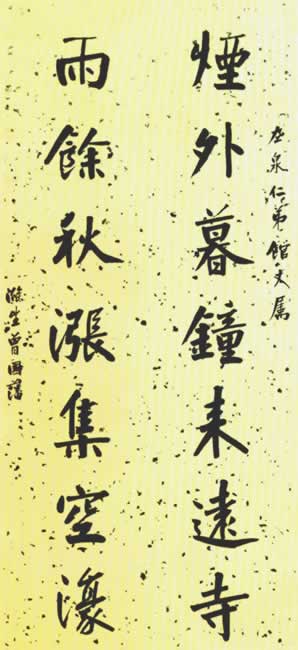 泉仁弟館丈属
煙外暮鐘来遠寺
雨餘秋漲集空濠
滌生曾國藩